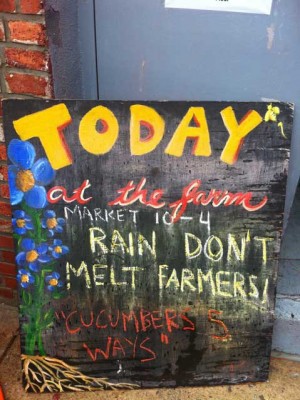 TODAY
at the farm
MARKET 10-4
RAIN DON'T
MELT FARMERS!
"CUCUMBERS 5
WAYS"